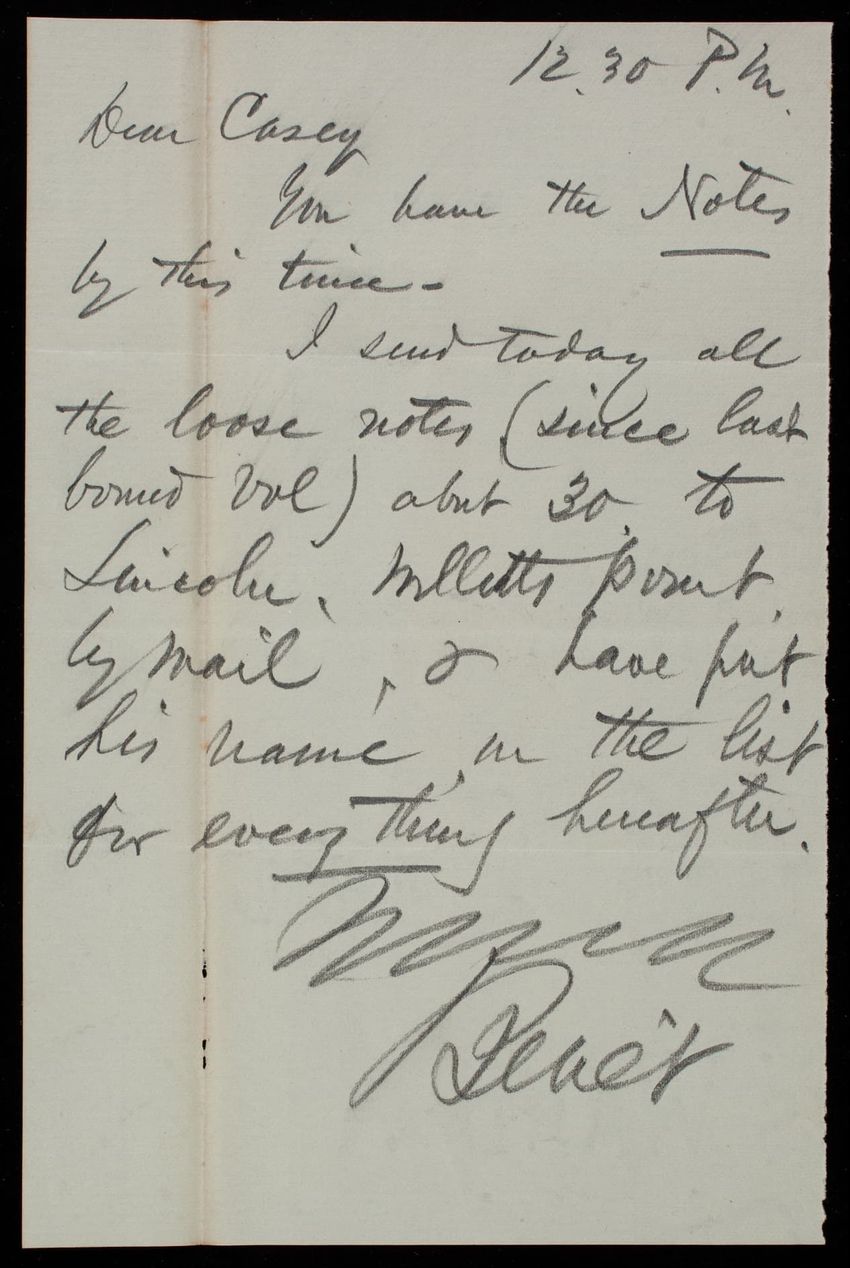 12.30 P.M.
Dear Casey
You have the Notes
by this time -
I send today all
the loose notes (since last
bound vol) about 30, to
Lincoln, Willetts Point,
by mail, & have put
his name, on the list
for everything hereafter.
Benét